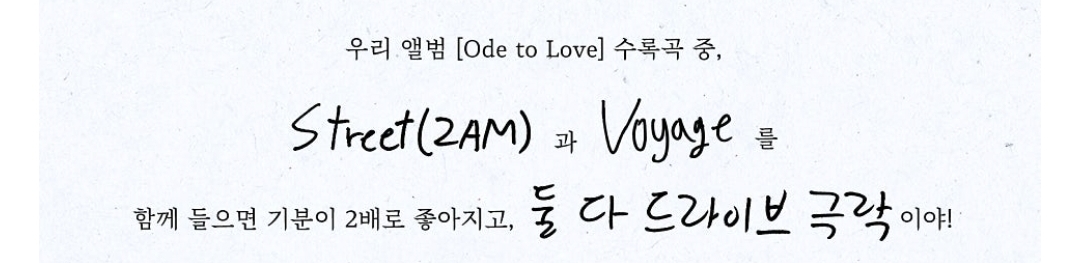 우리 앨범 [Ode to Love] 수록곡 중,
Street(2AM) 과 Voyage 를
함께 들으면 기분이 2배로 좋아지고, 둘 다 드라이브 극락 이야!